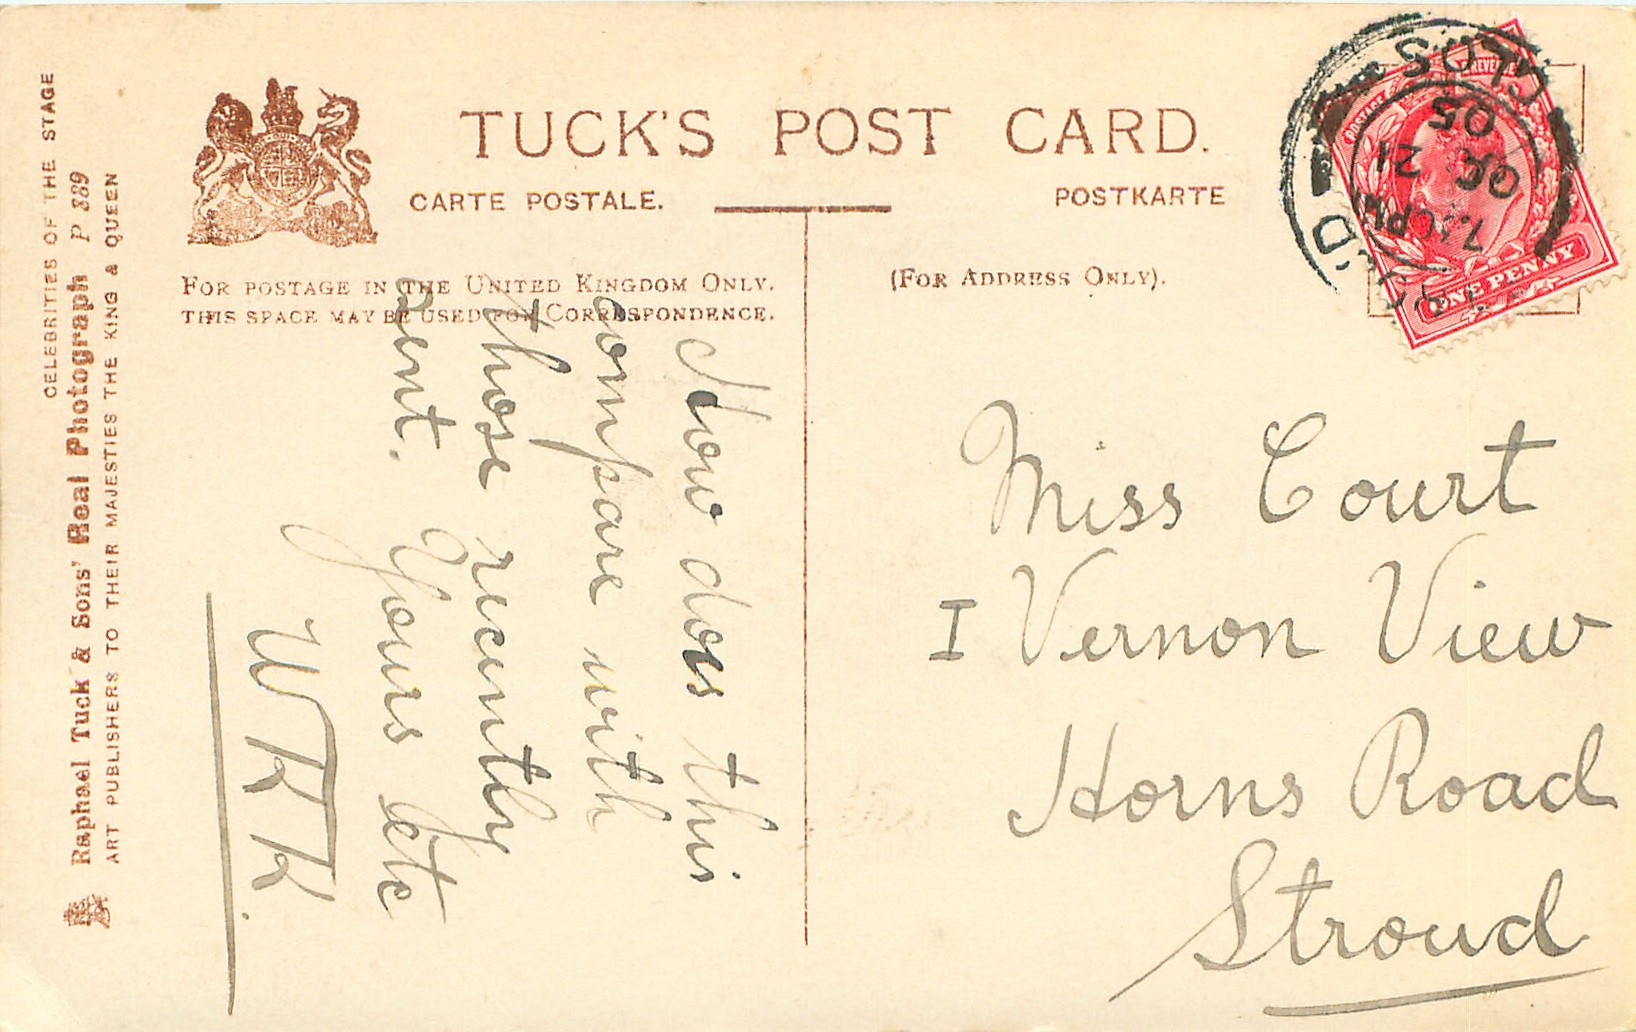 CELEBRITIES OF THE STAGE
Raphael Tuck & Sons' Real Photograph P 889
ART PUBLISHERS TO THEIR MAJESTIES THE KING & QUEEN
TUCK'S POST CARD.
CARTE POSTALE.
POSTKARTE
FOR POSTAGE IN THE UNITED KINGDOM ONLY.
THIS SPACE MAY BE USED FOR CORRESPONDENCE.
(FOR ADDRESS ONLY).
How does this
compare with
those recently
sent. Yours etc
Miss Court
1 Vernon View
Horns Road
Stroud
POSTAGE
REVENUE
ONE PENNY
GLOS
OC 21
05